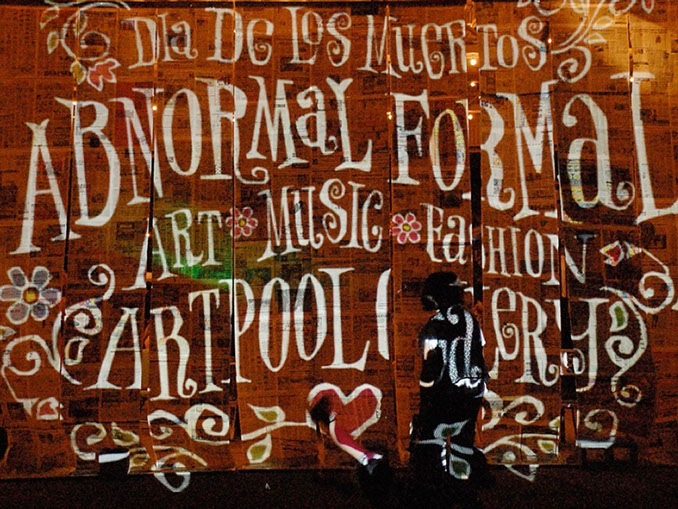 Dia De Los Muertos
ABNORMAL FORMAL
ART MUSIC FASHION
ARTPOOL GALLERY